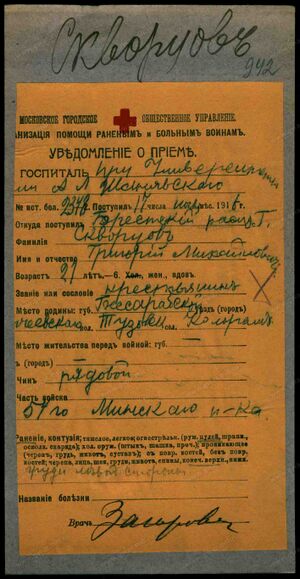 Скворцовъ
942
МОСКОВСКОЕ ГОРОДСКОЕ ОБЩЕСТВЕННОЕ УПРАВЛЕНІЕ.
АНИЗАЦІЯ ПОМОЩИ РАНЕНЫМЪ И БОЛЬНЫМЪ ВОИНАМЪ.
УВѢДОМЛЕНІЕ О ПРІЕМѢ.
ГОСПИТАЛЬ при Университе
А Л Шанявскаго
№ ист. бол. Поступил числа мѣс. 191
Откуда поступилъ Брестскій распр. г.
Фамилія Скворцовъ
Имя и отчество Григорій Михайловичъ
Возрастъ 21 лѣтъ. б. Хол., жен., вдов.
Званіе или сословіе крестьянинъ
Мѣсто родины: губ. Бессарабской уѣздъ (городъ)
вол. Тузовск сел.
Мѣсто жительства передъ войной: губ.
ъ (городъ)
Чинъ рядовой
Часть войска
54го Минскаго п-ка
Раненіе, контузія; тяжелое, легкое; огнестрѣльн. (руж. пулей, шрапн.,
оскол. снаряда); хол. оруж. (штык., шашка, проч.); проникающее
(черепъ, грудь, животъ, суставъ); съ повр. костей, безъ повр.
костей; черепа, лица, шея, грудь, животъ, спины, конеч. верхн., нижн.
груди
Названіе болѣзни
Врачъ